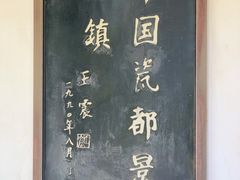 国瓷都景
镇 王震
一九九〇年八月